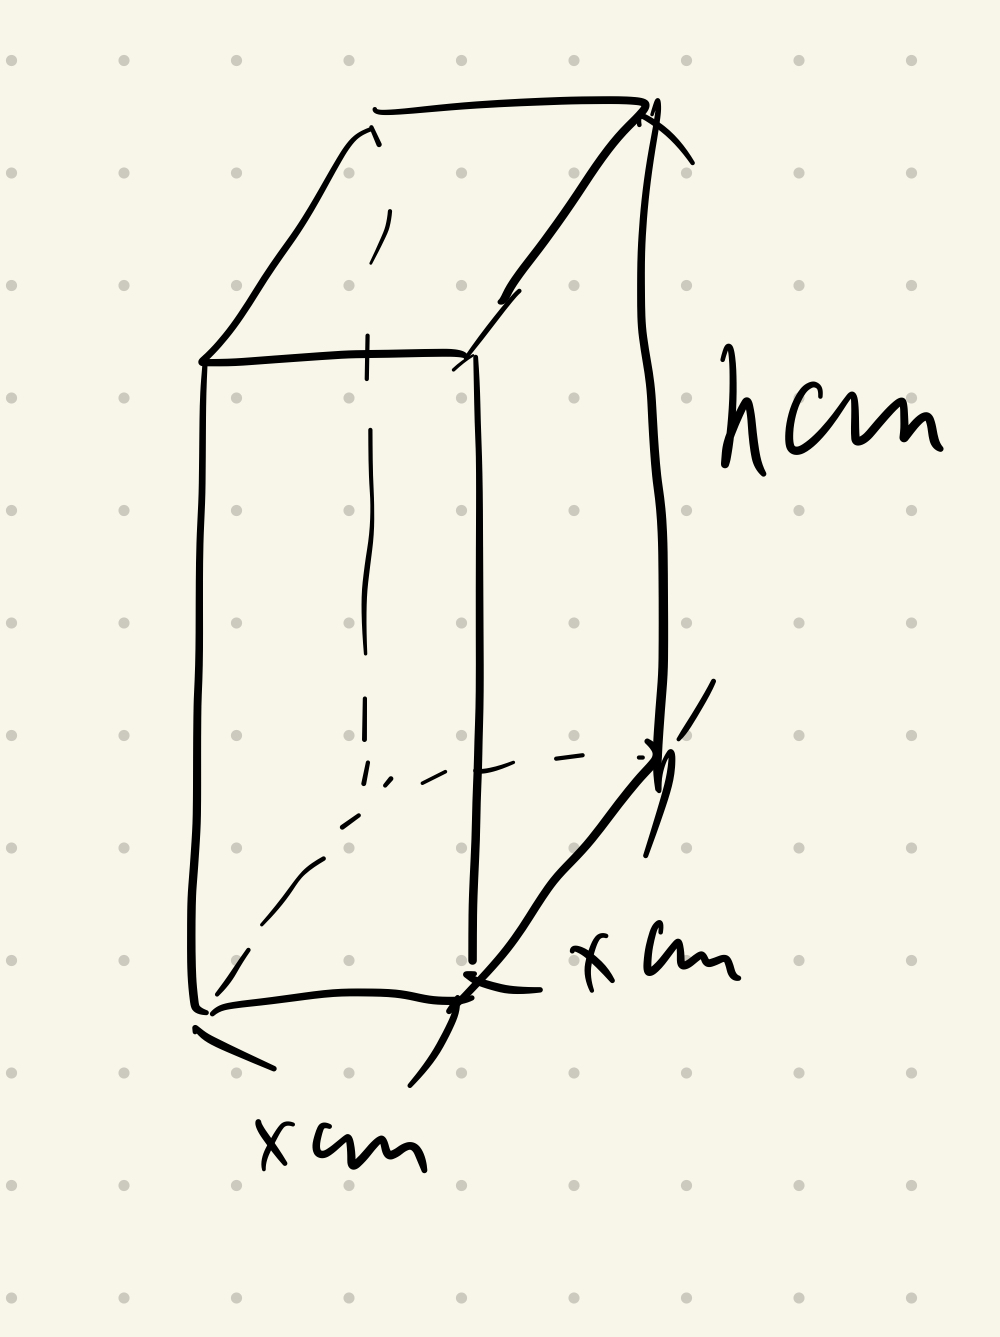 h cm
x cm
x cm